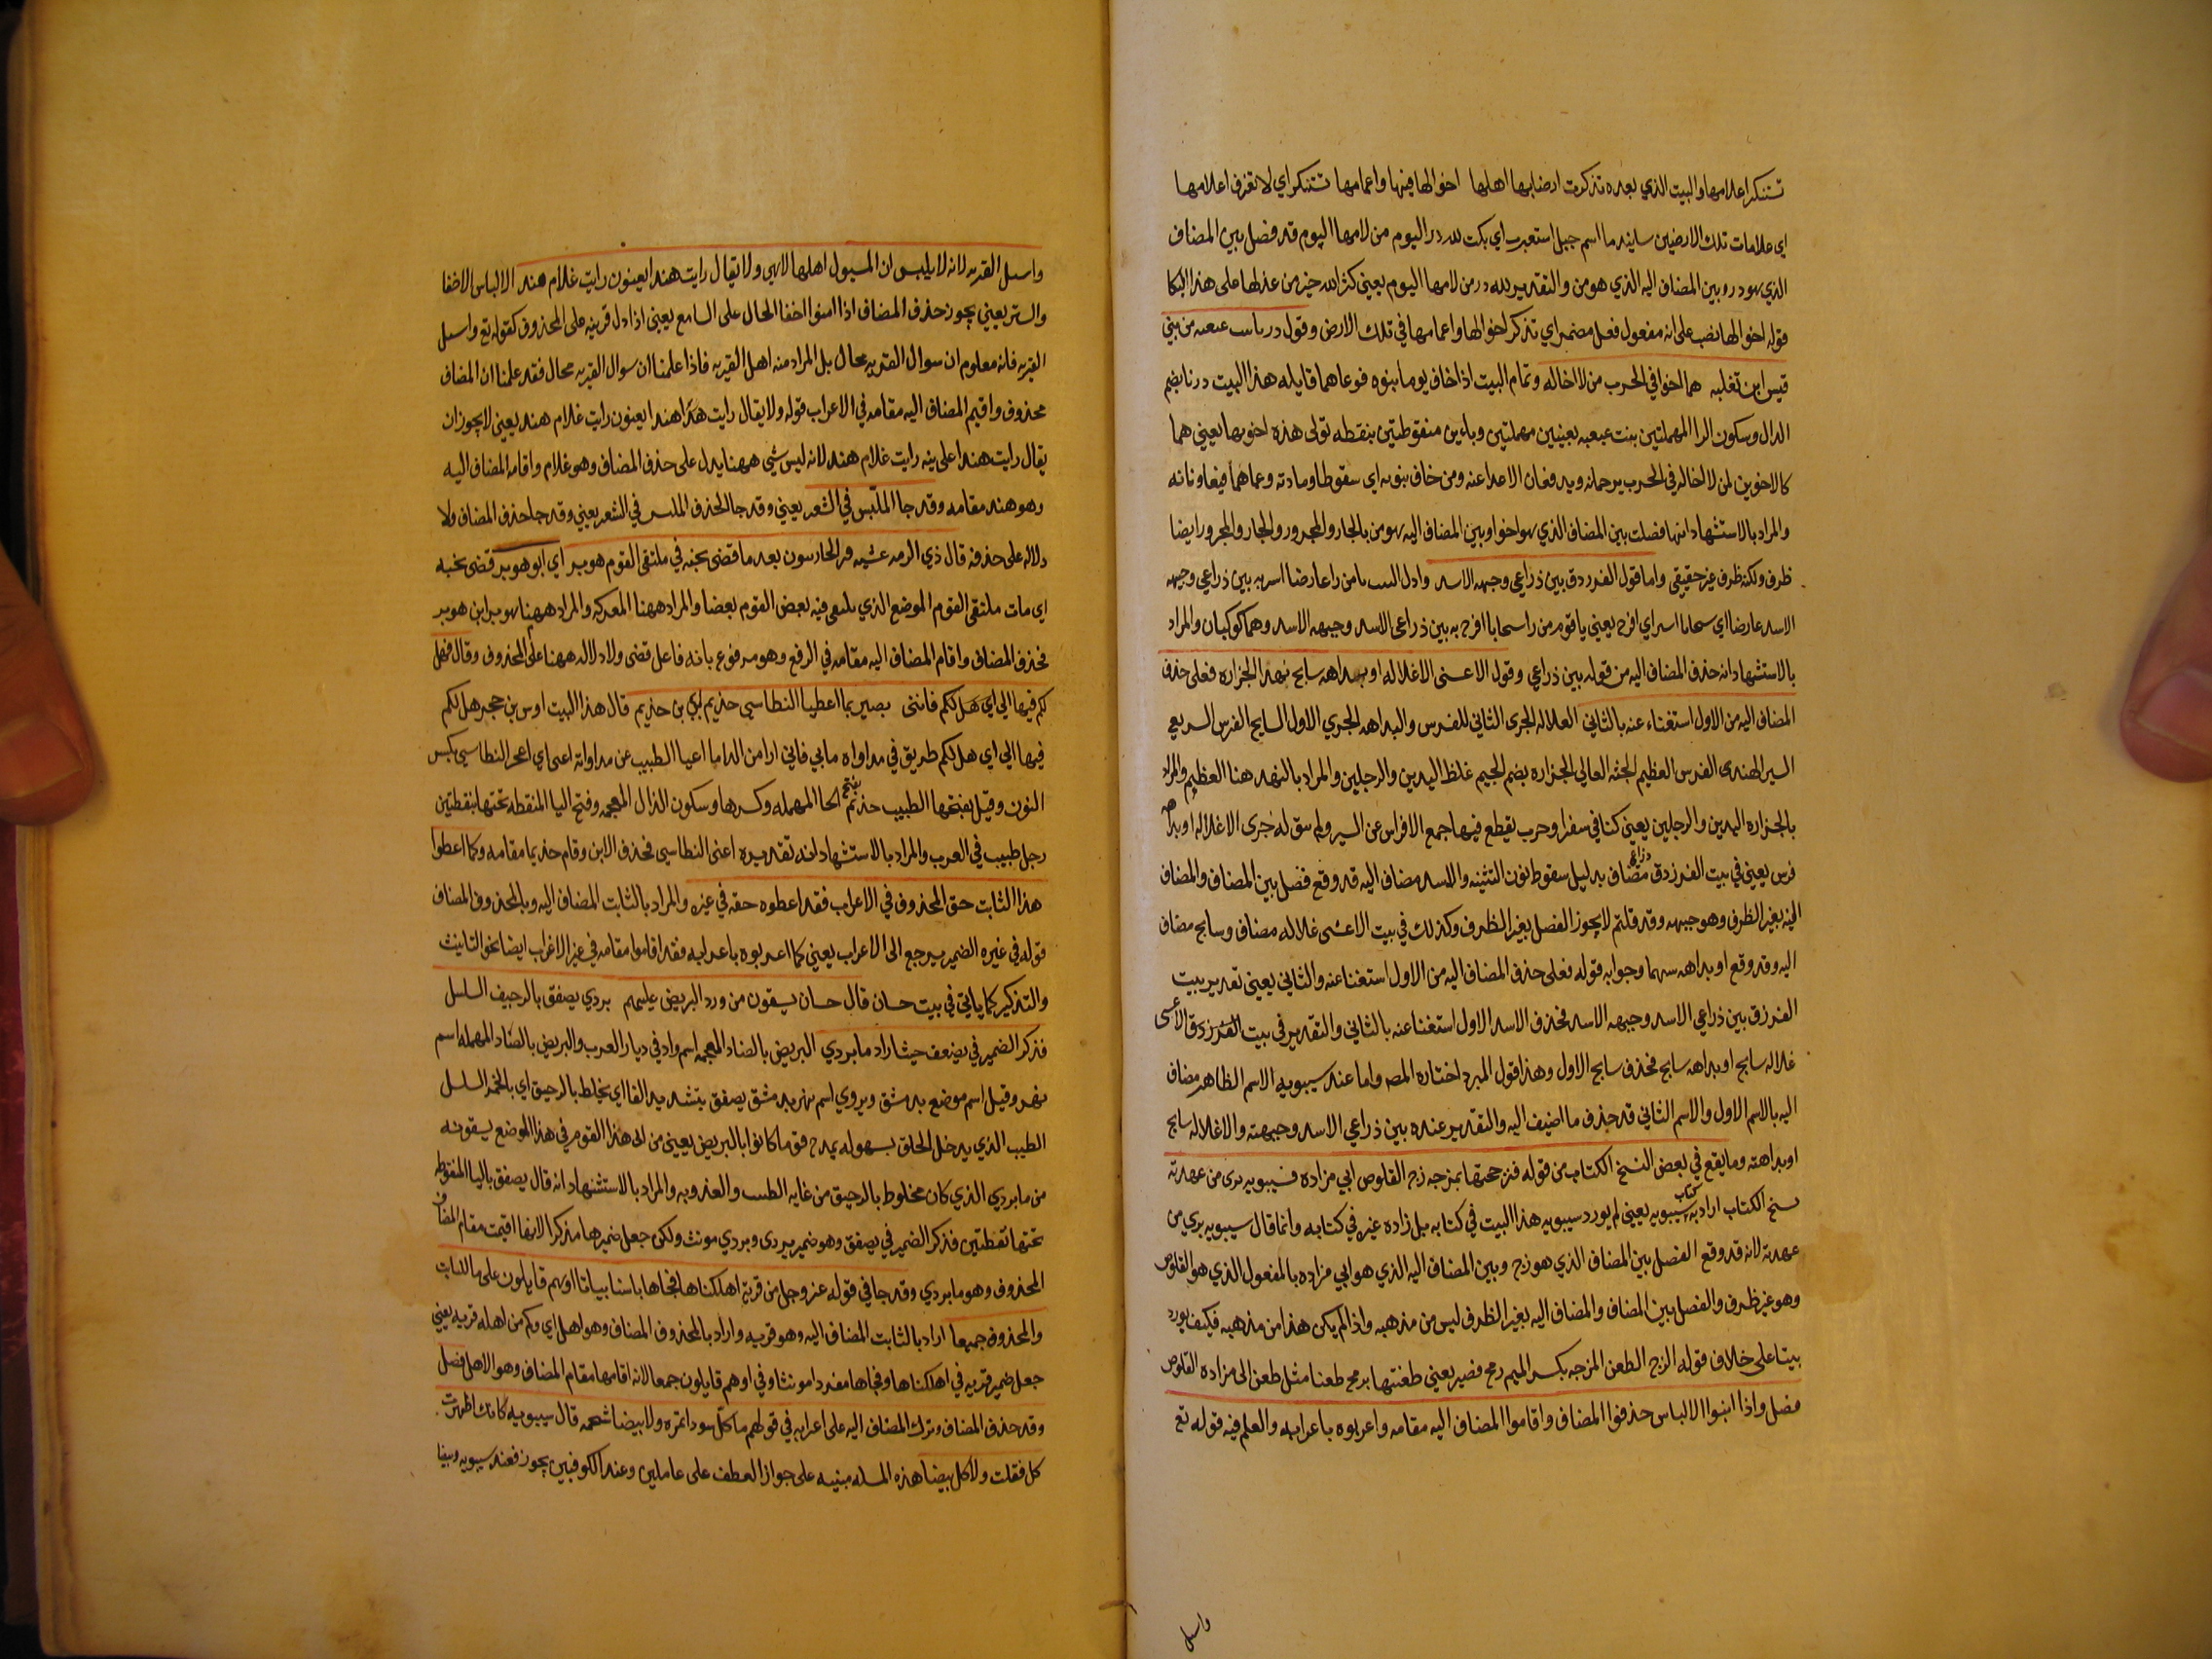 تتنكر اعلامها والبيت الذي بعده تذكرت ارضا بها اهلها اخوالها فيها واعمامها تتنكر اي لا تعرف اعلامها
اي علامات تلك الارضين ساتيدما اسم جبل استعبرت اي بكت لله در اليوم من لامها اليوم قد فصل بين المضاف
الذي هو در وبين المضاف اليه الذي هو من والتقدير لله در من لامها اليوم يعني كثر الله خير من عذلها على هذا البكا
قوله اخوالها نصب على انه مفعول فعل مضمر اي تذكر اخوالها واعمامها في تلك الارض وقول درنا بنت عبعبه من بني
قيس ابن ثعلبه هما اخوا في الحرب من لا اخا له وتمام البيت اذا خاف يوما نبوه فدعاهما قايله هذا البيت درنا بضم
الدال وسكون الرا المهملتين بنت عبعبه بعينين مهملتين وباءين منقوطتين بنقطه تولى هذه اخويها يعني هما
كالاخوين لمن لا اخا له في الحرب يرحمانه ويدفعان الاعدا عنه ومن خاف نبوه اي سقوطا وحادثه دعاهما فيعاونانه
والمراد بالاستشهاد انها فصلت بين المضاف الذي هو اخوا وبين المضاف اليه هو من بالجار والمجرور والجار والمجرور ايضا
ظرف ولكنه ظرف غير حقيقي واما قول الفرزدق بين ذراعي وجبهه الاسد واول البيت يا من راى عارضا اسر به بين ذراعي وجبهه
الاسد عارضا اي سحابا اسر اي افرح يعني يا قوم من راى سحابا افرح به بين ذراعي الاسد وجبهه الاسد وهما كوكبان والمراد
بالاستشهاد انه حذف المضاف اليه من قوله بين ذراعي وقول الاعشى الا علاله او بداهه سابح نهد الجزاره فعلى حذف
المضاف اليه من الاول استغناء عنه بالثاني العلاله الجرى الثاني للفرس والبداهه الجري الاول السابح الفرس السريع
السير النهد الفرس العظيم الجثه العالي الجزاره بضم الجيم غلظ اليدين والرجلين والمراد بالنهد هنا العظيم والمراد
بالجزاره اليدين والرجلين يعني كنا في سفر او حرب يقطع فيها جمع الافراس عن السير ولم يبق له جرى الا علاله او بداهه
فرس يعني في بيت الفرزدق ذراعي مضاف بدليل سقوط نون التثنيه والاسد مضاف اليه قد وقع فصل بين المضاف والمضاف
اليه بغير الظرف وهو جبهه وقد قلتم لا يجوز الفصل بغير الظرف وكذلك في بيت الاعشى علاله مضاف وسابح مضاف
اليه وقد وقع او بداهه بينهما وجوابه قوله فعلى حذف المضاف اليه من الاول استغنا عنه والثاني يعني تقدير بيت
الفرزدق بين ذراعي الاسد وجبهه الاسد فحذف الاسد الاول استغنا عنه بالثاني والتقدير في بيت الفرزدق الاعشى
علاله سابح او بداهه سابح فحذف سابح الاول وهذا قول المبرد اختاره المص واما عند سيبويه الاسم الظاهر مضاف
اليه بالاسم الاول والاسم الثاني قد حذف ما اضيف اليه والتقدير عنده بين ذراعي الاسد وجبهته والا علاله سابح
او بداهته وما يقع في بعض النسخ الكتاب من قوله فزججتها بمزجه زج القلوص ابي مزاده فسيبويه برى من عهدته
نسخ الكتاب اراد به كتاب سيبويه يعني لم يورد سيبويه هذا البيت في كتابه بل زاده غيره في كتابه وانما قال سيبويه بري من
عهدته لانه قد وقع الفصل بين المضاف الذي هو زج وبين المضاف اليه الذي هو ابي مزاده بالمفعول الذي هو القلوص
وهو غير ظرف والفصل بين المضاف والمضاف اليه بغير الظرف ليس من مذهبه واذا لم يكن هذا من مذهبه فكيف يورد
بيتا على خلاف قوله الزج الطعن المزجه بكسر الميم رمح قصير يعني طعنتها برمح طعنا مثل طعن ابي مزاده القلوص
فصل واذا امنوا الالباس حذفوا المضاف واقاموا المضاف اليه مقامه واعربوه باعرابه والعلم فيه قوله تع
واسل
واسل القريه لانه لا يلبس ان المسيول اهلها لا هي ولا يقال رايت هندا يعنون رايت غلام هند الالباس الاخفا
والستر يعني يجوز حذف المضاف اذا امنوا اخفا الحال على السامع يعني اذا دل قرينه على المحذوف كقوله تع واسل
القريه فانه معلوم ان سوال القريه محال بل المراد منه اهل القريه فاذا علمنا ان سوال القريه محال فقد علمنا ان المضاف
محذوف واقيم المضاف اليه مقامه في الاعراب قوله ولا يقال رايت هندا يعنون رايت غلام هند يعني لا يجوز ان
يقال رايت هندا على نيه رايت غلام هند لانه ليس شي ههنا يدل على حذف المضاف وهو غلام واقامه المضاف اليه
وهو هند مقامه وقد جا الملبس في الشعر يعني وقد جا الحذف الملبس في الشعر يعني وقد جا حذف المضاف ولا
دلاله على حذفه قال ذي الرمه عشيه فر الحارسون بعد ما قضى نحبه في ملتقى القوم هوبر اي ابو هوبر قضى نحبه
اي مات ملتقى القوم الموضع الذي يلتقى فيه بعض القوم بعضا والمراد ههنا المعركه والمراد ههنا بهوبر ابن هوبر
فحذف المضاف واقام المضاف اليه مقامه في الرفع وهو مرفوع بانه فاعل قضى ولا دلاله ههنا على المحذوف وقال فهل
لكم فيها الي اي هل لكم فانني بصير بما اعطيا النطاسي حذيم اي بن حذيم قال هذا البيت اوس بن حجر هل لكم
فيها الي اي هل لكم طريق في مداواه ما بي فاني ارا من الدا ما اعيا الطبيب عن مداواته اعيى اي اعجز النطاسي بكسر
النون وقيل بفتحها الطبيب حذيم بفتح الحا المهمله وكسرها وسكون الذال المعجمه وفتح اليا المنقطه تحتها بنقطتين
رجل طبيب في العرب والمراد بالاستشهاد انه تقديره اعيى النطاسي فحذف الابن وقام حذيما مقامه وكما اعطوا
هذا الثابت حق المحذوف في الاعراب فقد اعطوه حقه في غيره والمراد بالثابت المضاف اليه وبالمحذوف المضاف
قوله في غيره الضمير يرجع الى الاعراب يعني كما اعربوه باعرابه فقد اقاموا مقامه في غير الاعراب ايضا نحو التانيث
والتذكير كما ياتي في بيت حسان قال حسان يسقون من ورد البريض عليهم بردي يصفق بالرحيق السلسل
فذكر الضمير في يصفق حيث اراد ما بردي البريض بالضاد المعجمه اسم واد في ديار العرب والبريص بالصاد المهمله اسم
نهر وقيل اسم موضع بدمشق ويروي اسم نهر بدمشق يصفق بتشديد الفا اي يخلط بالرحيق اي بالخمر السلسل
الطيب الذي يدخل الحلق بسهوله يمدح قوما كانوا بالبريض يعني من اتى هذا القوم في هذا الموضع يسقونه
من ما بردي الذي كان مخلوط بالرحيق من غايه الطيب والعذوبه والمراد بالاستشهاد انه قال يصفق باليا المنقوطه
تحتها نقطتين فذكر الضمير في يصفق وهو ضمير بردى وبردي مونث ولكن جعل ضميرها مذكرا لانها اقيمت مقام المضاف
المحذوف وهو ما بردي وقد جا في قوله عز وجل من قريه اهلكناها فجاها باسنا بياتا او هم قايلون على ما للثابت
والمحذوف جميعا اراد بالثابت المضاف اليه وهو قريه واراد بالمحذوف المضاف وهو اهل اي وكم من اهله قريه يعني
جعل ضمير قريه في اهلكناها وفجاها مفردا مونثا وفي او هم قايلون جمعا لانه اقامها مقام المضاف وهو الاهل فصل
وقد حذف المضاف وترك المضاف اليه على اعرابه في قولهم ما كل سودا تمره ولا بيضا شحمه قال سيبويه كانك اظهرت
كل فقلت ولا كل بيضا هذه المسله مبنيه على جواز العطف على عاملين وعند الكوفيين يجوز فعند سيبويه